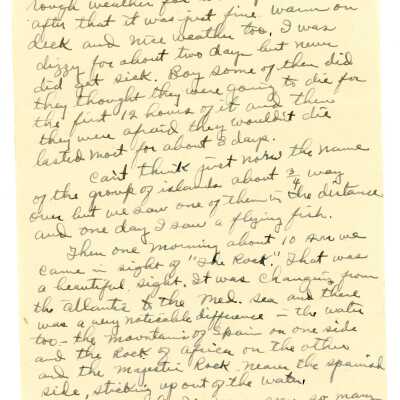 rough weather for
after that it was just fine. Warm on
deck and nice weather too. I was
dizzy for about two days but never
did get sick. Boy some of them did
they thought they were going to die for
the first 12 hours of it and then
they were afraid they wouldn't die
lasted most for about 3 days.
Can't think just now the name
of the group of islands about 3/4 way
over but we saw one of them in the distance
and one day I saw a flying fish.
Then one morning about 10 we
came in sight of "The Rock". That was
a beautiful sight. It was changing from
the Atlantic to the Med. sea and there
was a very noticable difference in the water
too - the Mountains of Spain on one side
and the Rock of Africa on the other
and the majestic Rock near the spanish
side, sticking up out of the water.
so many